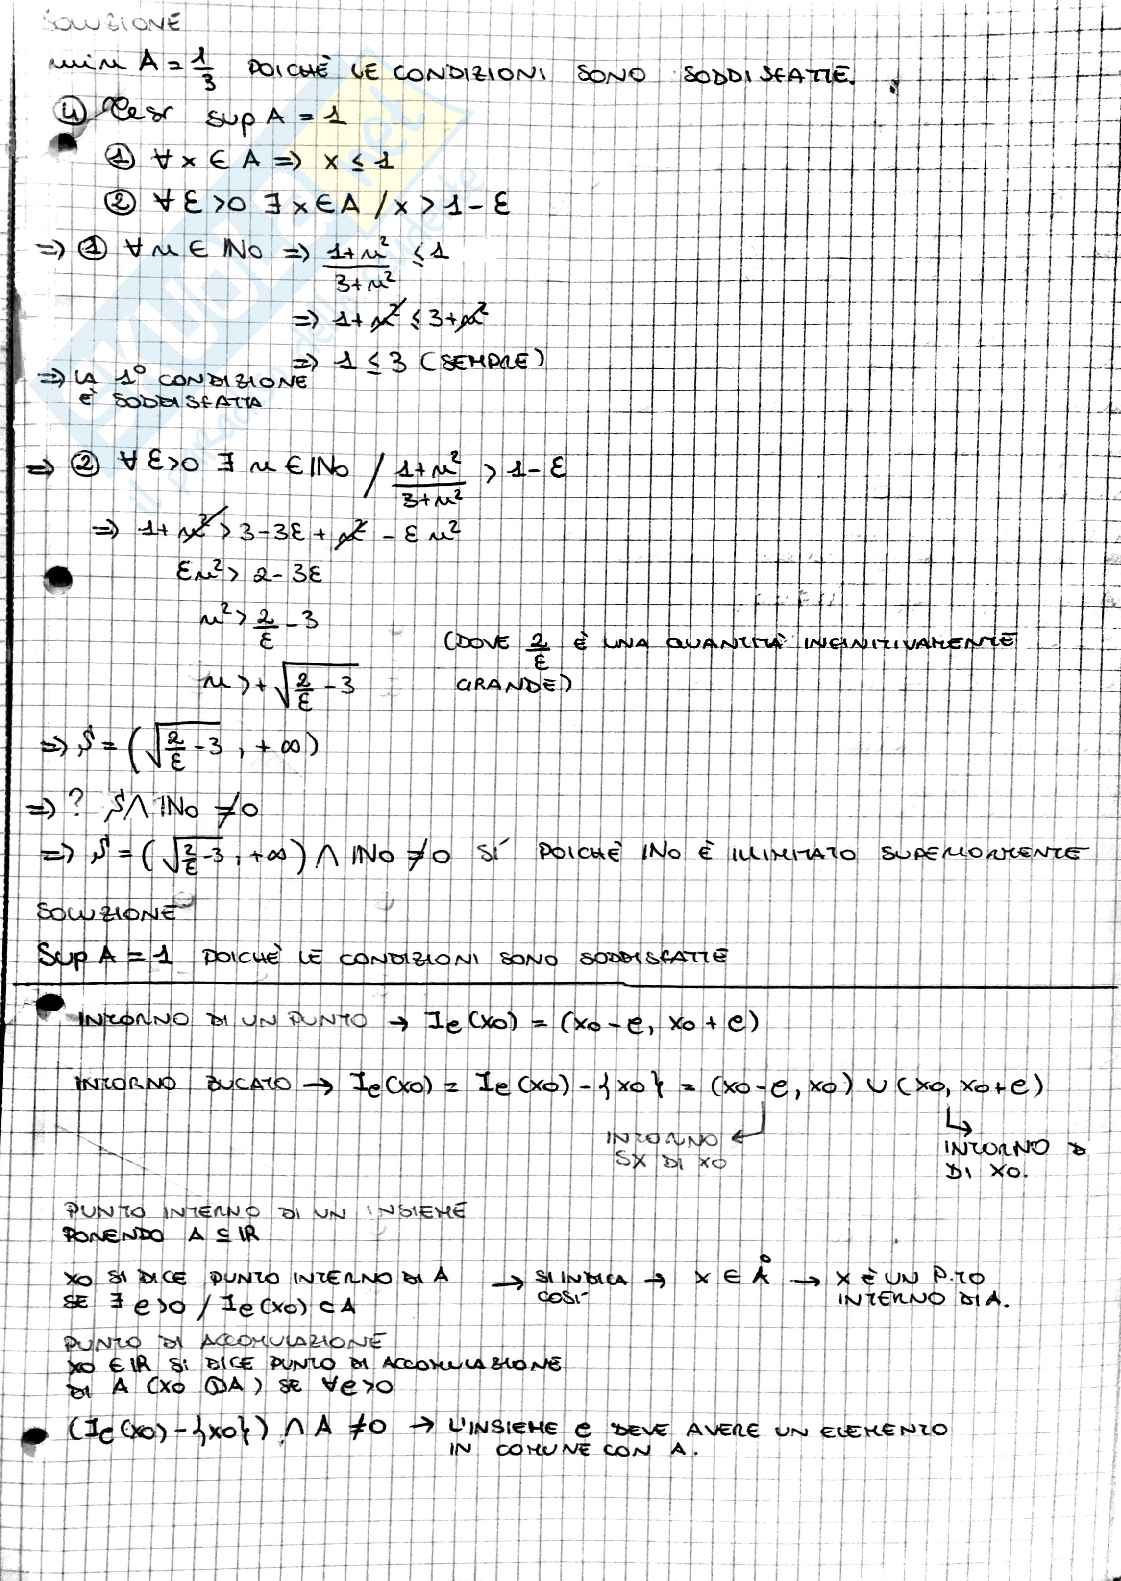 SOLUZIONE
min A = 1/3 POICHÈ LE CONDIZIONI SONO SODDISFATTE.
④ Tesi sup A = 1
① ∀ x ∈ A ⇒ x ≤ 1
② ∀ ε > 0 ∃ x ∈ A / x > 1 - ε
⇒ ① ∀ n ∈ INo ⇒ (1+n²)/(3+n²) ≤ 1
⇒ 1+n² ≤ 3+n²
⇒ 1 ≤ 3 (SEMPRE)
⇒ LA 1° CONDIZIONE
È SODDISFATTA
⇒ ② ∀ ε>0 ∃ n ∈ INo / (1+n²)/(3+n²) > 1 - ε
⇒ 1+n² > 3-3ε + n² - ε n²
εn² > 2-3ε
n² > 2/ε - 3
(DOVE 2/ε È UNA QUANTITÀ INFINITIVAMENTE
GRANDE)
n > + √(2/ε - 3)
⇒ S = (√(2/ε - 3) , +∞)
⇒ ? S ∧ INo ≠ 0
⇒ S = (√(2/ε - 3) , +∞) ∧ INo ≠ 0 SÍ POICHÈ INo È ILLIMITATO SUPERIORMENTE
SOLUZIONE
Sup A = 1 POICHÈ LE CONDIZIONI SONO SODDISFATTE
INTORNO DI UN PUNTO → Ie(xo) = (xo-e, xo+e)
INTORNO BUCATO → Ie(xo) = Ie(xo) - {xo} = (xo-e, xo) ∪ (xo, xo+e)
INTORNO
SX DI XO
INTORNO D
DI XO.
PUNTO INTERNO DI UN INSIEME
PONENDO A ⊆ IR
XO SI DICE PUNTO INTERNO DI A → SI INDICA COSÌ → X ∈ Å → X È UN P.TO INTERNO DI A.
SE ∃ e>0 / Ie(xo) ⊂ A
PUNTO DI ACCOMULAZIONE
XO ∈ IR SI DICE PUNTO DI ACCOMULAZIONE
DI A (XO ⒹA) SE ∀e>0
(Ie(xo) - {xo}) ∧ A ≠ 0 → L'INSIEME e DEVE AVERE UN ELEMENTO
IN COMUNE CON A.